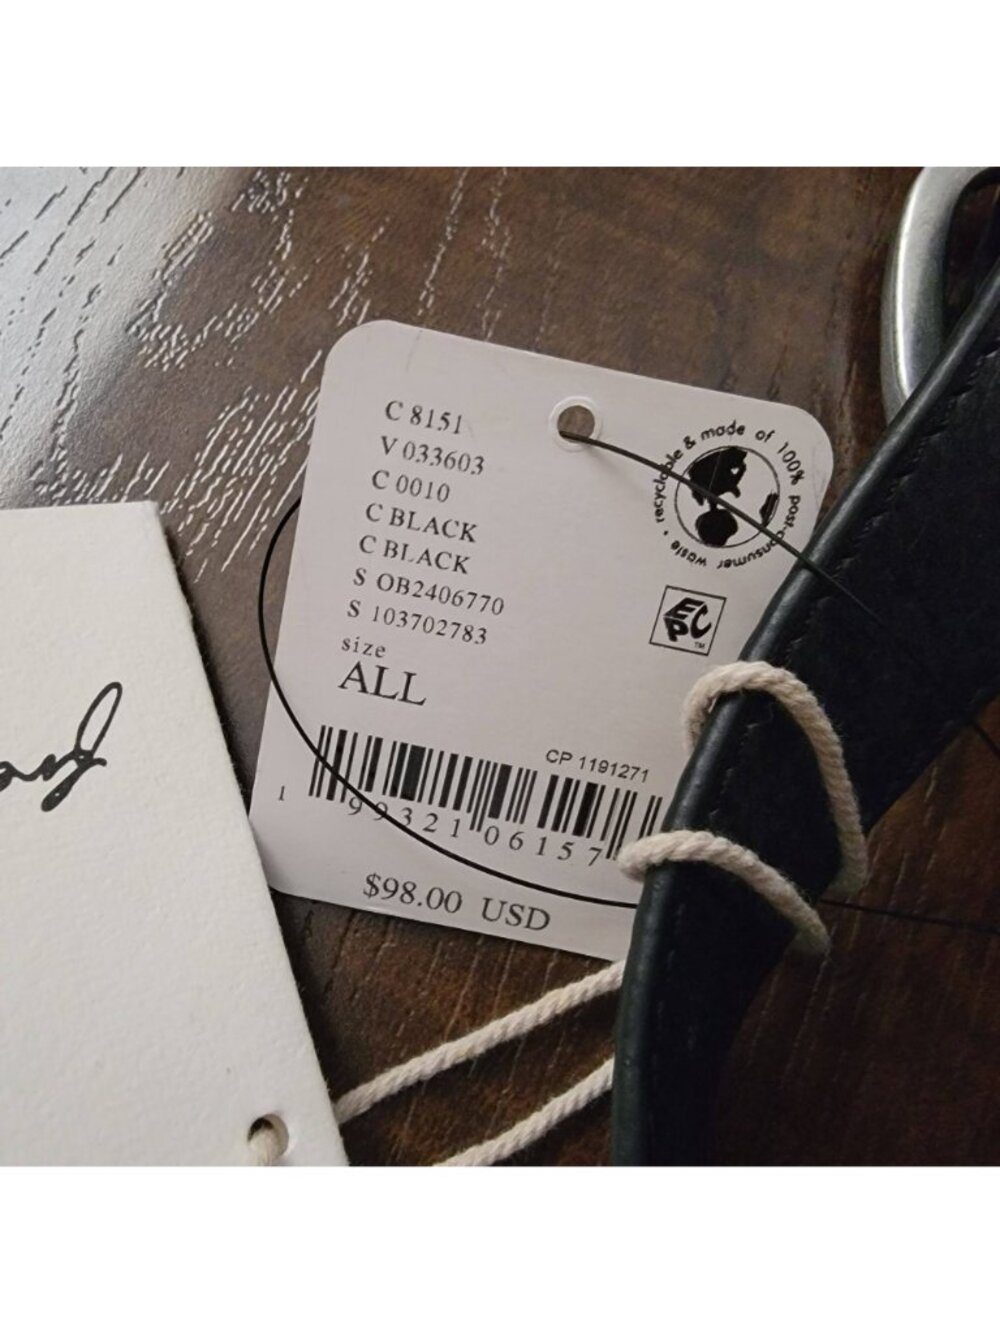 C 8151
V 033603
C 0010
C BLACK
C BLACK
S OB2406770
S 103702783
size
ALL
recyclable & made of 100% post-consumer waste •
EPC
TM
CP 1191271
1 99321 06157
$98.00 USD